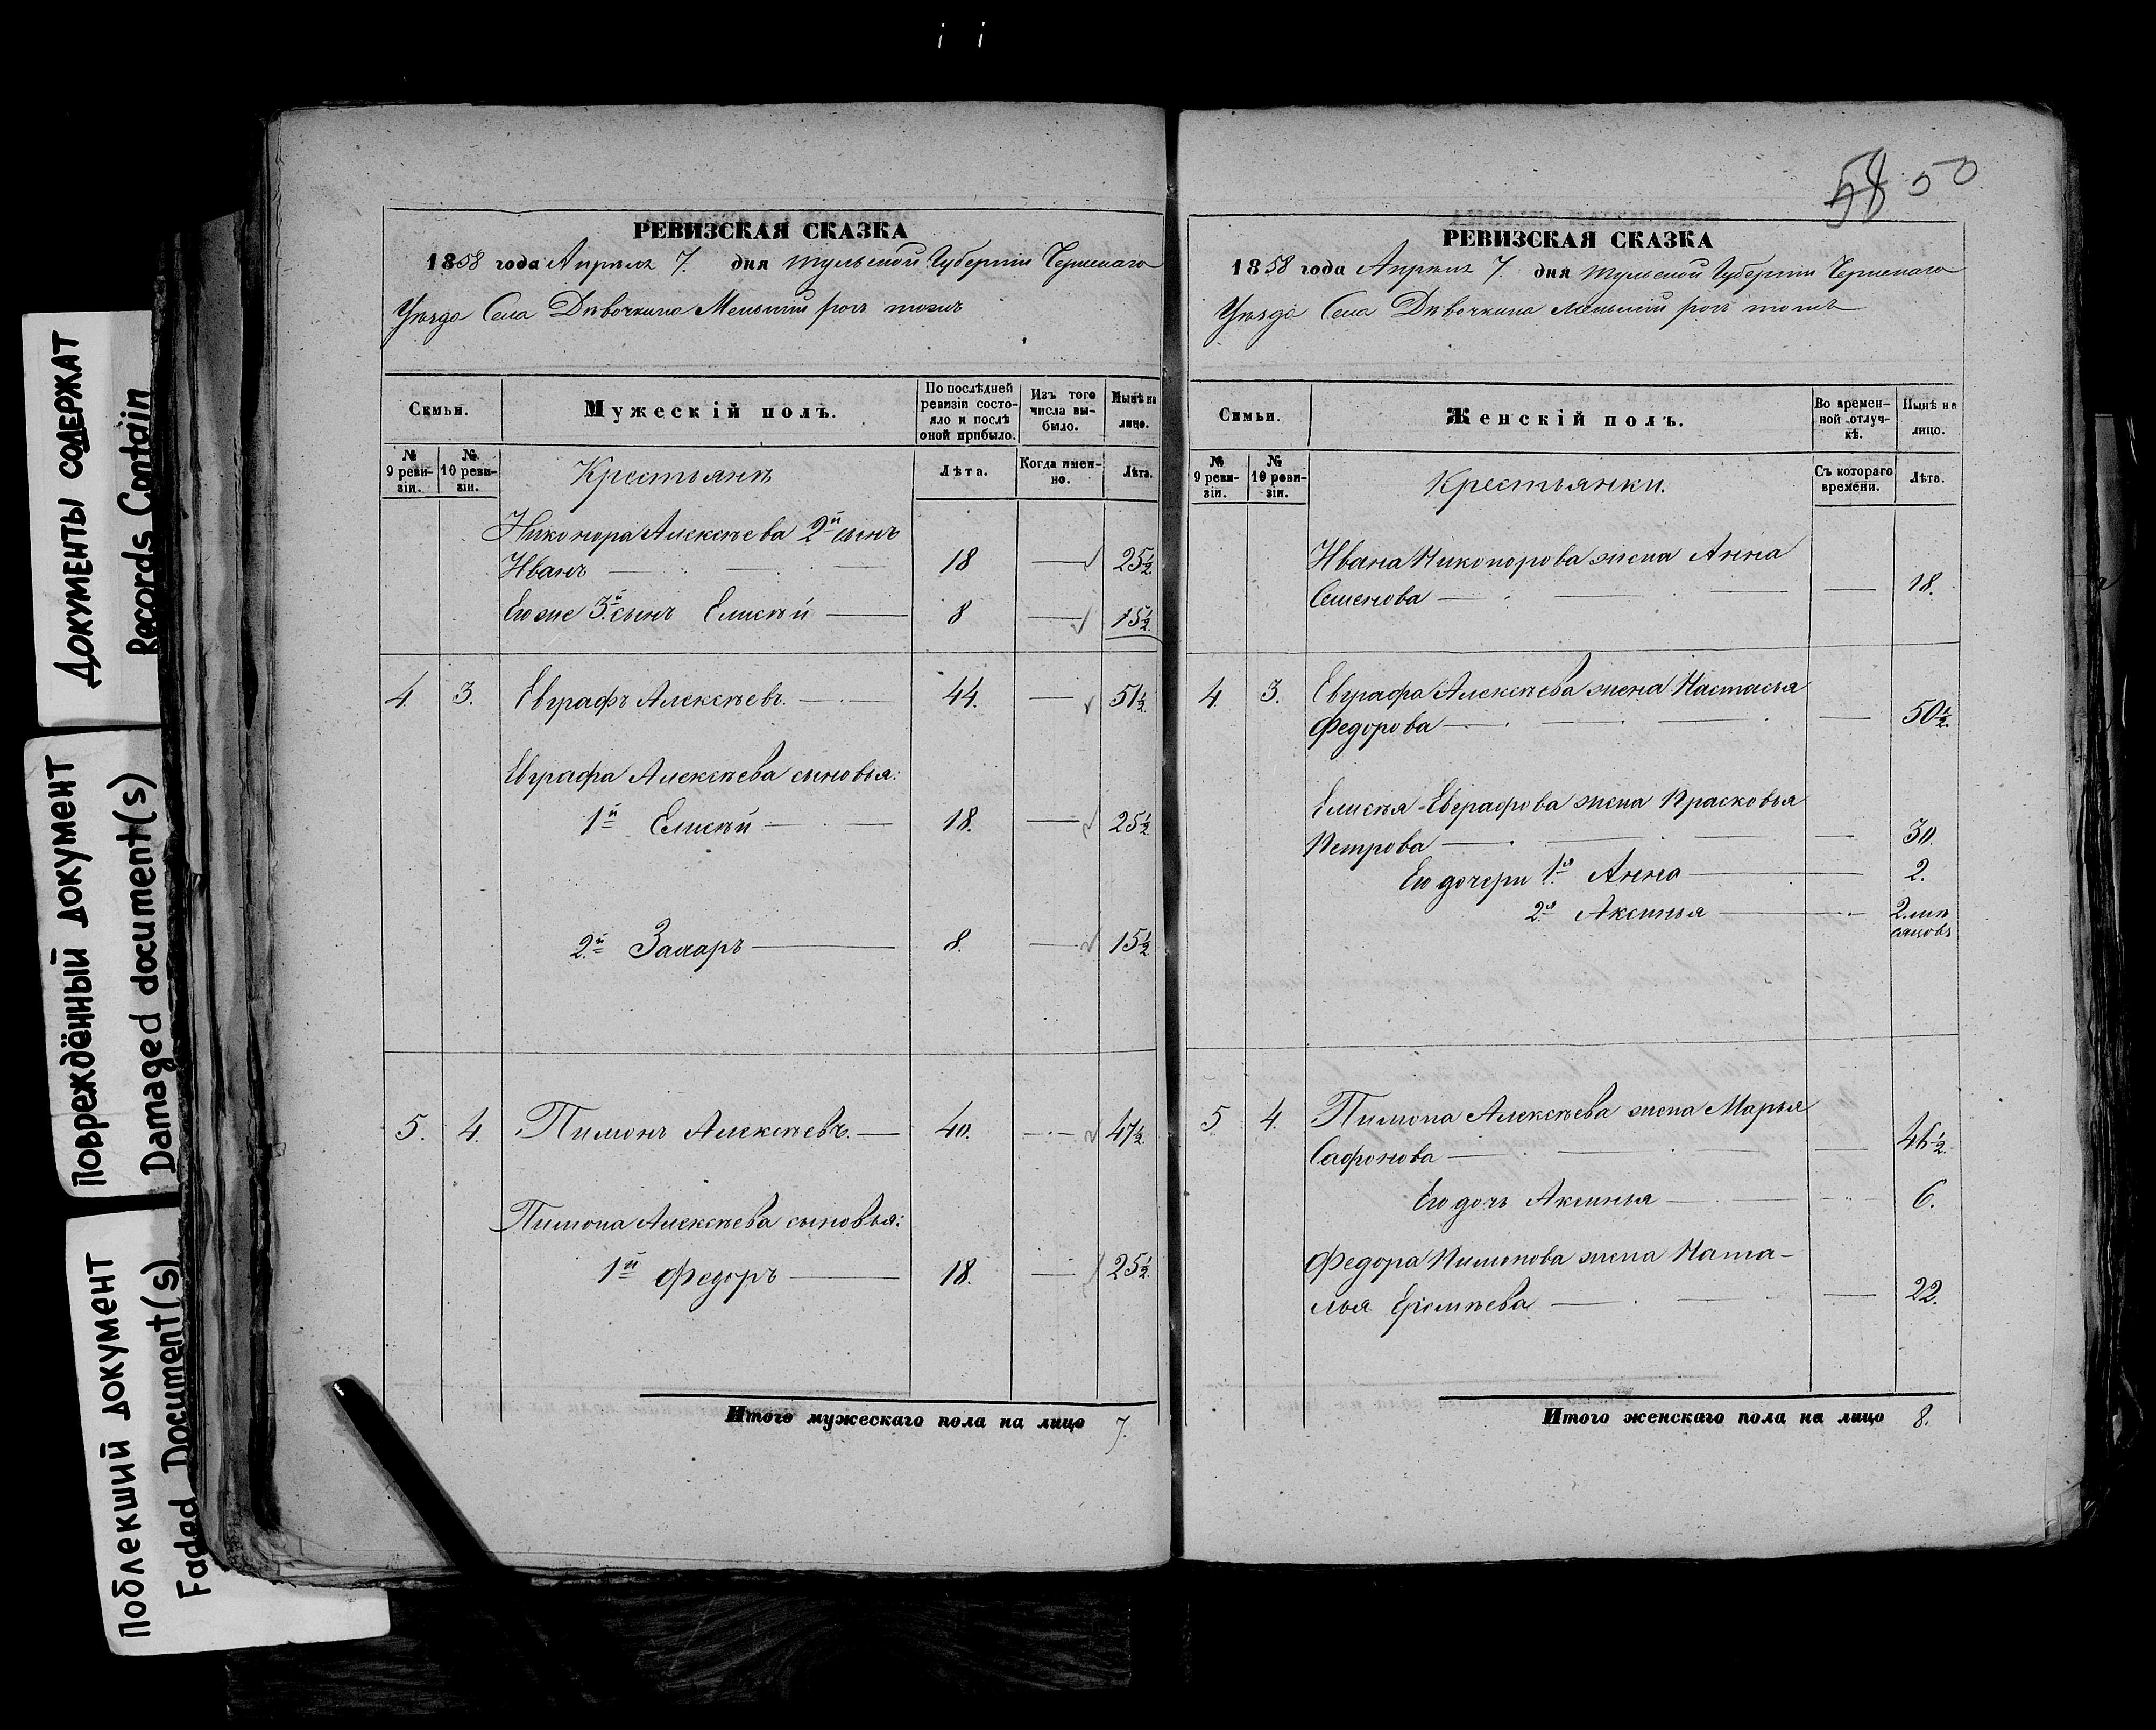 Документы содержат
Records Contain
Повреждённый документ
Damaged document(s)
Поблекший документ
Faded Document(s)
РЕВИЗСКАЯ СКАЗКА
1858 года Апреля 7. дня Тульской Губернiи Чернскаго
Уѣзда Села Дѣвочкина Меньшiй рогъ тожъ
Семьи.
Мужескiй полъ.
По послѣдней ревизiи состояло и послѣ оной прибыло.
Изъ того числа выбыло.
Нынѣ на лицо.
№ 9 ревизiи.
№ 10 ревизiи.
Крестьянѣ
Лѣта.
Когда именно.
Лѣта.
Никонора Алексѣева 2й сынъ
Иванъ — 18 — 25½
Его же 3й сынъ Елисѣй — 8 — 15½.
4. 3. Евграфъ Алексѣевъ. — 44. — 51½.
Евграфа Алексѣева сыновья:
1й Елисѣй — 18. — 25½.
2й Захаръ — 8. — 15½.
5. 4. Пимонъ Алексѣевъ. — 40. — 47½.
Пимона Алексѣева сыновья:
1й Федоръ — 18. — 25½.
Итого мужескаго пола на лицо 7.
54 50
РЕВИЗСКАЯ СКАЗКА
1858 года Апрѣля 7. дня Тульской Губернiи Чернскаго
Уѣзда Села Дѣвочкина Меньшiй рогъ тожъ
Семьи.
Женскiй полъ.
Во временной отлучкѣ.
Нынѣ на лицо.
№ 9 ревизiи.
№ 10 ревизiи.
Крестьянки.
Съ котораго времени.
Лѣта.
Ивана Никонорова жена Анна
Семенова — — 18.
4. 3. Евграфа Алексѣева жена Настасья
Федорова — — 50½.
Елисѣя Евграфова жена Прасковья
Петрова — — 30.
Его дочери 1я Анна — — 2.
2я Аксинья — — 2 мѣсяцовъ
5 4. Пимона Алексѣева жена Марья
Сафонова — — 46½.
Его дочь Аксинья — — 6.
Федора Пимонова жена Ната-
лья Ерѣмѣева — — 22.
Итого женскаго пола на лицо 8.